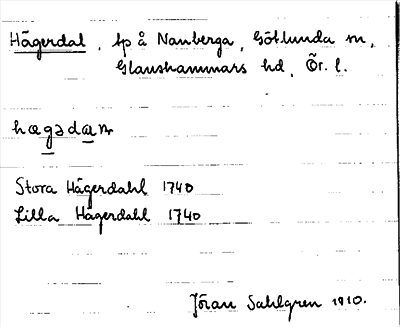 Hägerdal, tp å Nanberga, Götlunda sn,
Glanshammars hd, Ör. l.
hægədæn
Stora Hägerdahl 1740
Lilla Hägerdahl 1740
Jöran Sahlgren 1910.